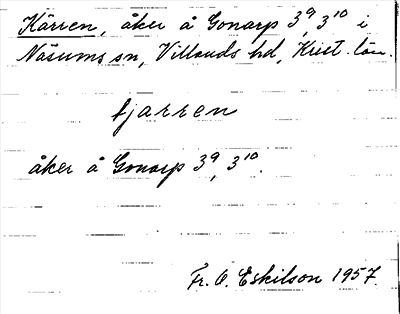 Kärren, åker å Gonarp 3⁹, 3¹⁰ i
Näsums sn, Villands hd, Krist. län.
tjarren
åker å Gonarp 3⁹, 3¹⁰.
Fr. O. Eskilson 1957.